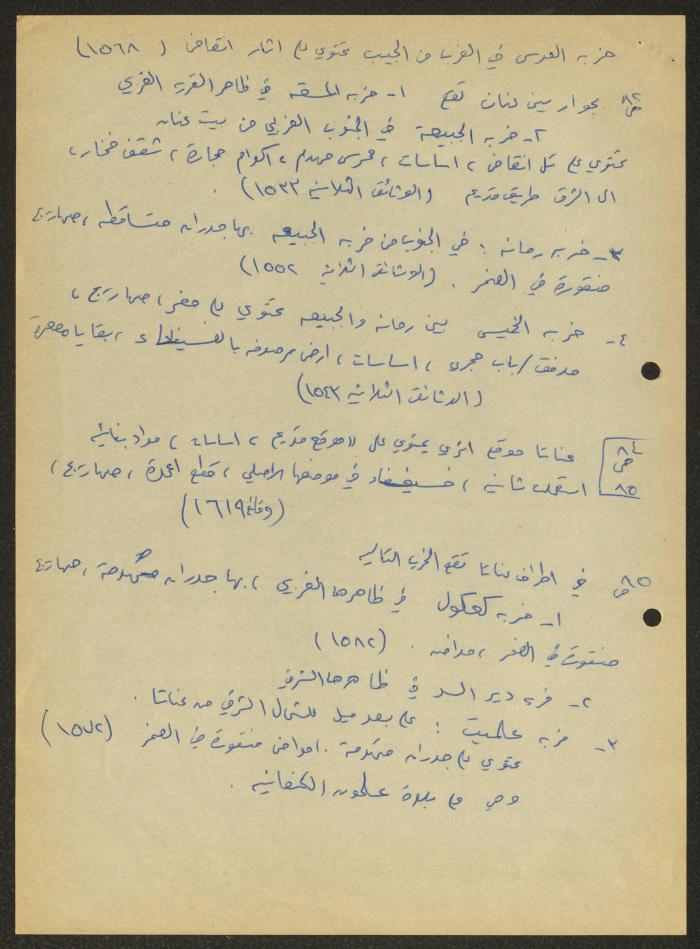 خربه العدس في الغرب من الجيب تحتوي على اثار انقاض ( ١٥٦٨)
ص ٨٢ بجوار بيت عنان تقع ١- خربه المسقه في ظاهر القريه الغربي
٢- خربه الجبيعة في الجنوب الغربي من بيت عنان
تحتوي على تل انقاض ، اساسات ، محرس مهدم ، اكوام حجارة ، شقف فخار ،
الى الشرق طريق قديم (الوثائق الثلاثية ١٥٣٣)
٣- خربه رمانه : في الجنوب من خربه الجبيعه بها جدران متساقطه ، صهاريج
منقورة في الصخر . (الوثائق الثلاثية ١٥٥٢)
٤- خربه الخميس بين رمانه والجبيعه تحتوي على حفر ، صهاريج ،
مدقق / باب حجري ، اساسات ، ارض مرصوفه بالفسيفساء ، بقايا معصرة
(الوثائق الثلاثيه ١٥٤٣)
ص ٨٤ ٨٥ عناتا موقع اثري يحتوي على " موقع قديم ، اساسات ، مواد بنائيه
استعملت ثانيه ، فسيفساء في موضعها الاصلي ، قطع اعمدة ، صهاريج ،
(وقائع ١٦١٩)
ص ٨٥ في اطراف عناتا تقع الخرب التاليه
١- خربه كعكول في ظاهرها الغربي ، بها جدران متهدمة ، صهاريج
منقورة في الصخر ، مدافن . (١٥٨٢)
٢- خربه دير السد في ظاهرها الشرقي
٣- خربه علميت : على بعد ميل للشمال الشرقي من عناتا .
تحتوي على جدران متهدمة . احواض منقورة في الصخر (١٥٧٢)
وهي على بلدة علمون الكنعانيه .